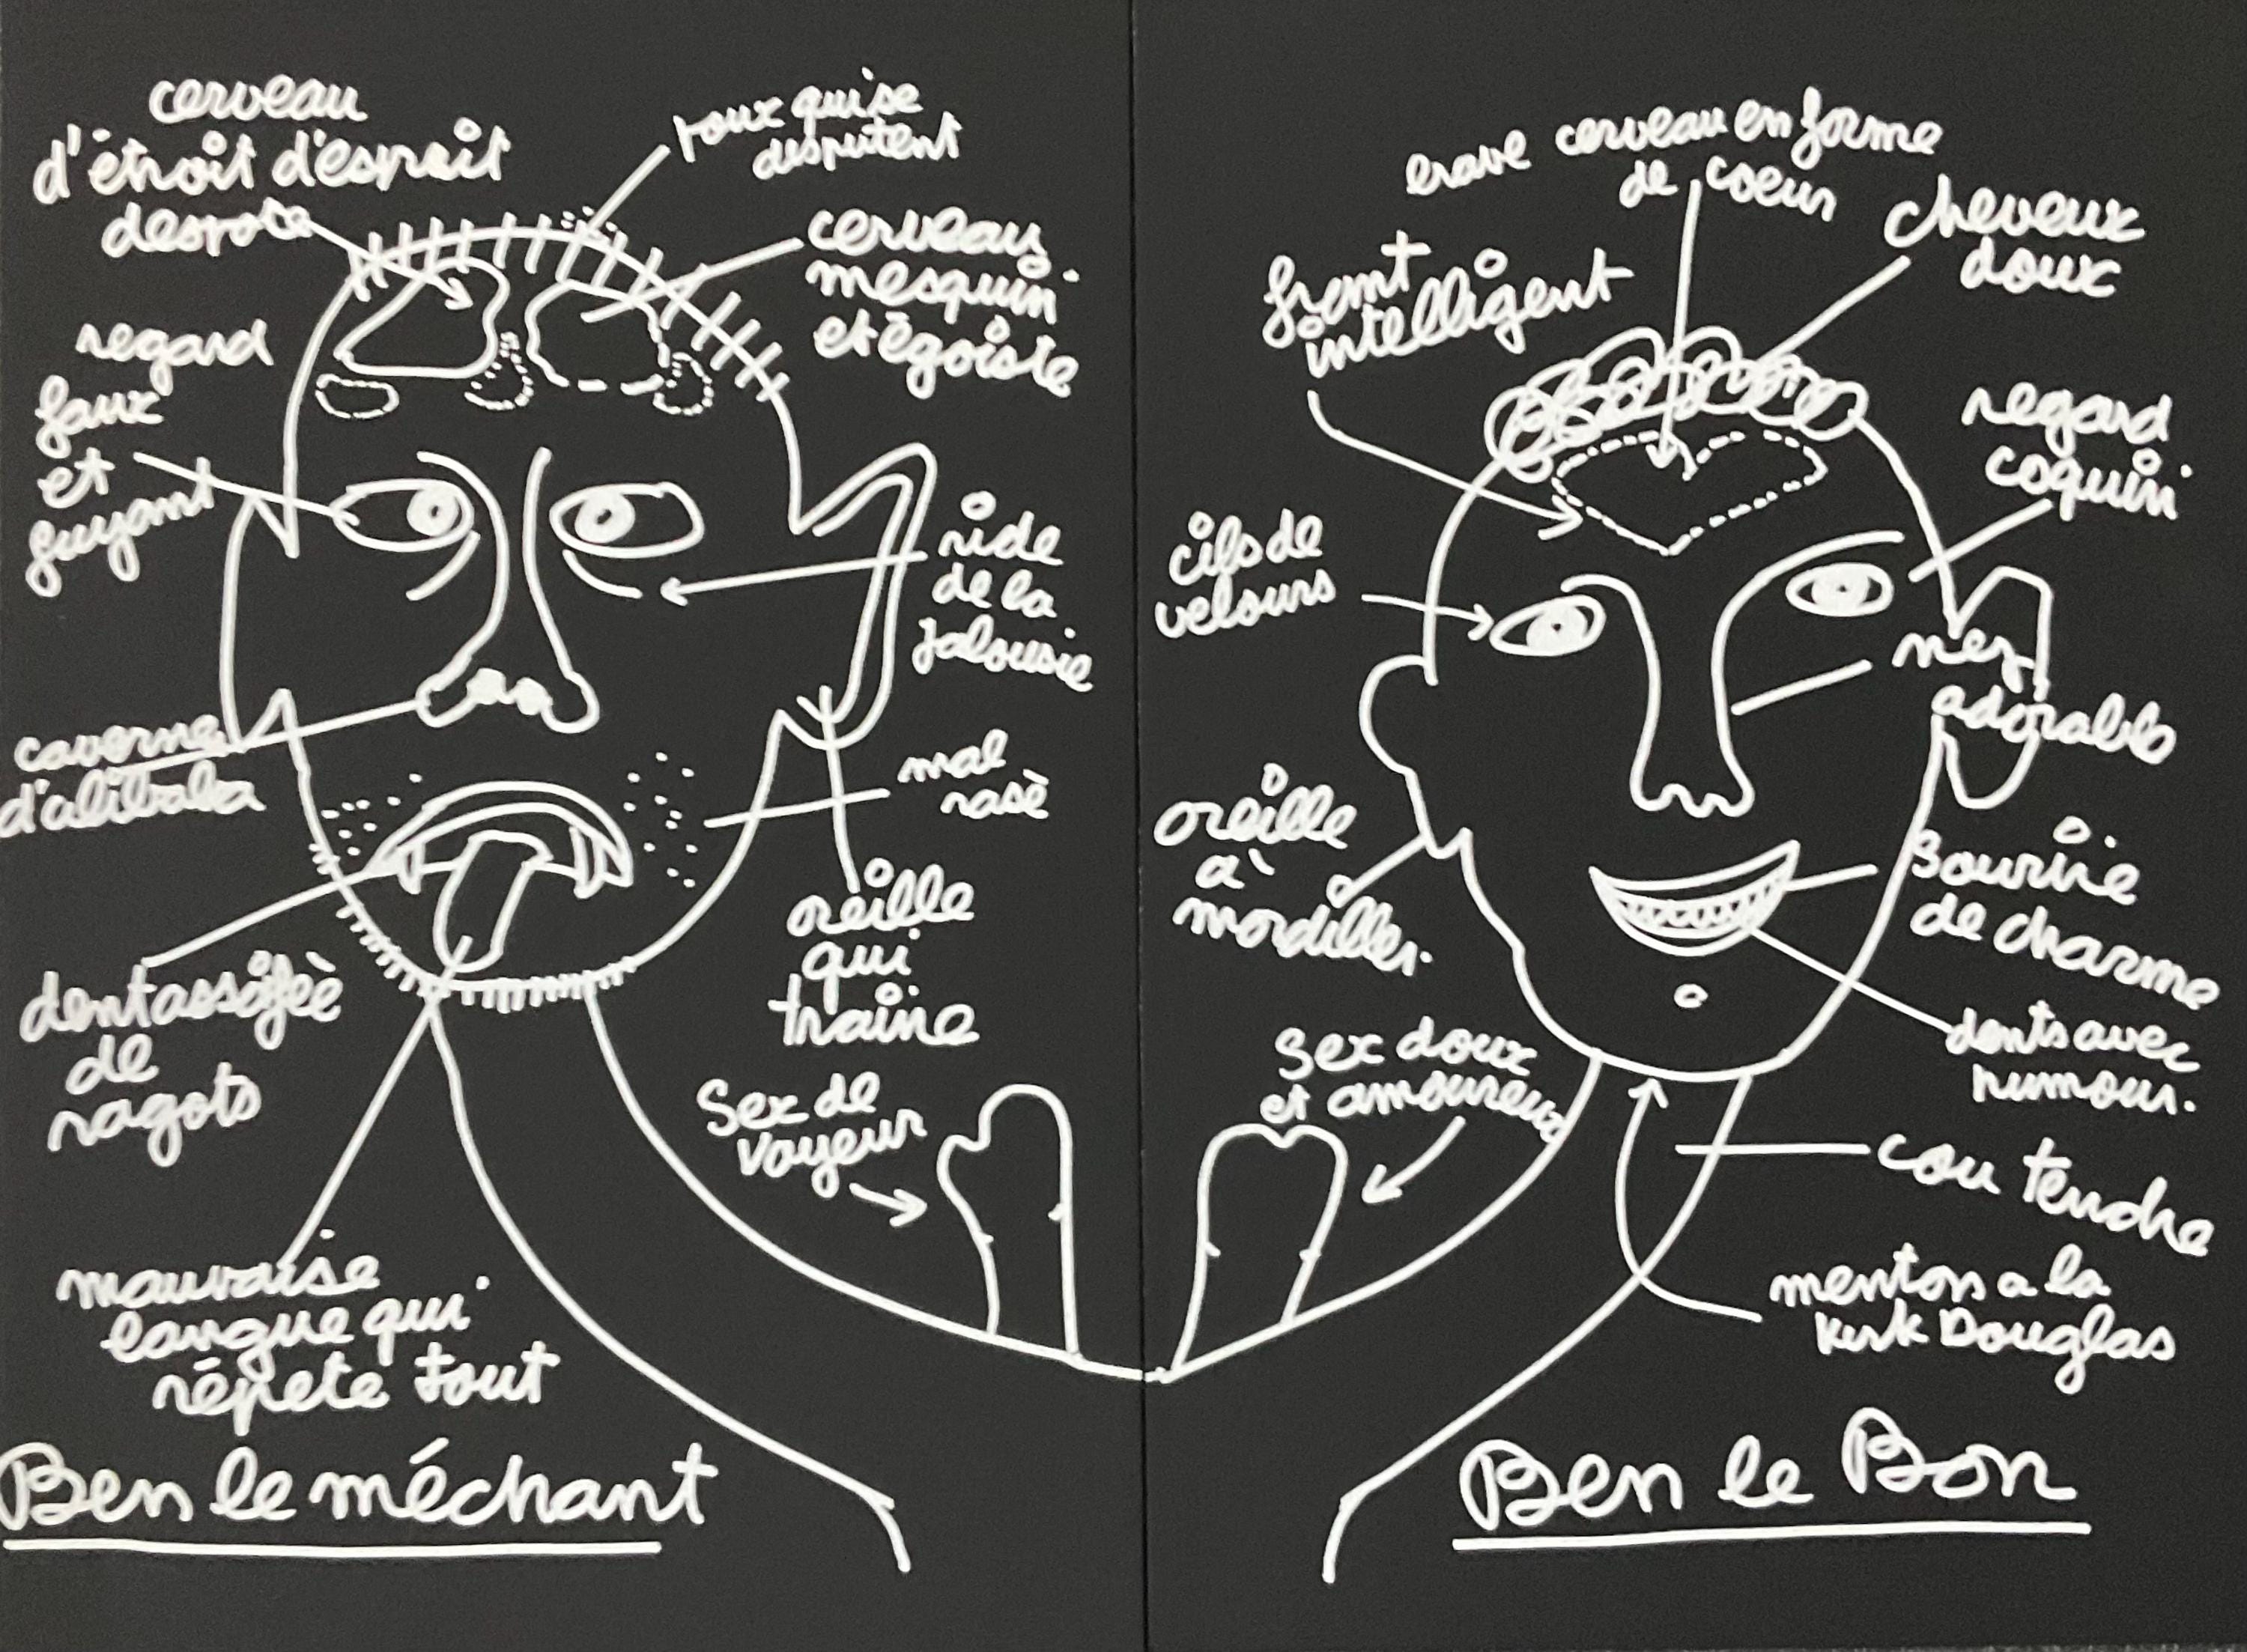 cerveau
d'étroit d'esprit
despote
poux qui se
disputent
cerveau
mesquin
et égoiste
regard
faux
et
fuyant
ride
de la
jalousie
caverne
d'alibaba
mal
rasè
dent assoifèè
de
ragots
oreille
qui
traine
Sex de
voyeur
mauvaise
langue qui
répete tout
Ben le méchant
brave cerveau en forme
de coeur
cheveux
doux
front
intelligent
regard
coquin
cils de
velours
nez
adorable
oreille
a'
mordiller.
Sourire
de charme
dents avec
humour.
Sex doux
et amoureux
cou tendre
menton a la
Kirk Douglas
Ben le Bon